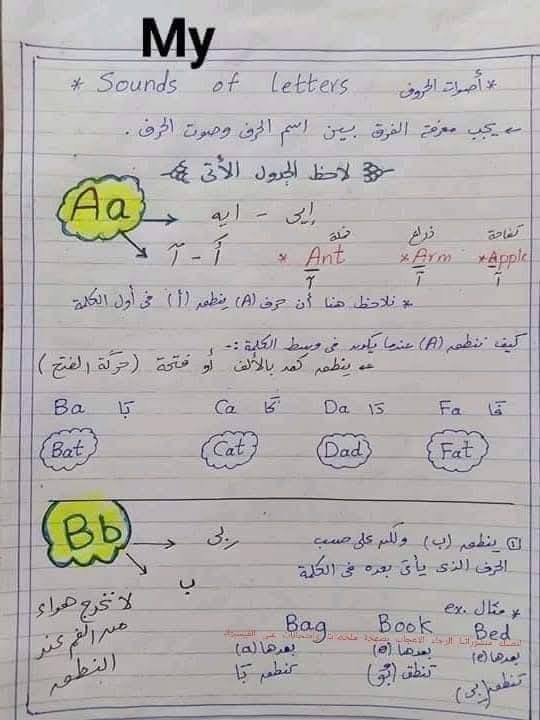 My
* Sounds of letters * أصوات الحروف
← يجب معرفة الفرق بين اسم الحرف وصوت الحرف .
لاحظ الجدول الأتى
Aa → إيى - ايه
تفاحة ذراع نملة
أَ - آ * Ant * Arm * Apple
آ آ أ
* نلاحظ هنا أن حرف (A) ينطق (أ) فى أول الكلمة
كيف ننطق (A) عندما يكون فى وسط الكلمة :-
ينطق كمد بالألف أو فتحة (حركة الفتح)
Ba بَا Ca كَا Da دَا Fa فَا
Bat Cat Dad Fat
Bb → بى
ب
① ينطق (ب) ولكن على حسب
الحرف الذى يأتى بعده فى الكلمة
لا تخرج هواء
من الفم عند
النطق
* مثال ex.
Bag Book Bed
بعدها (a) بعدها (o) بعدها (e)
تنطق بَا تنطق (بُو) تنطق (بِى)